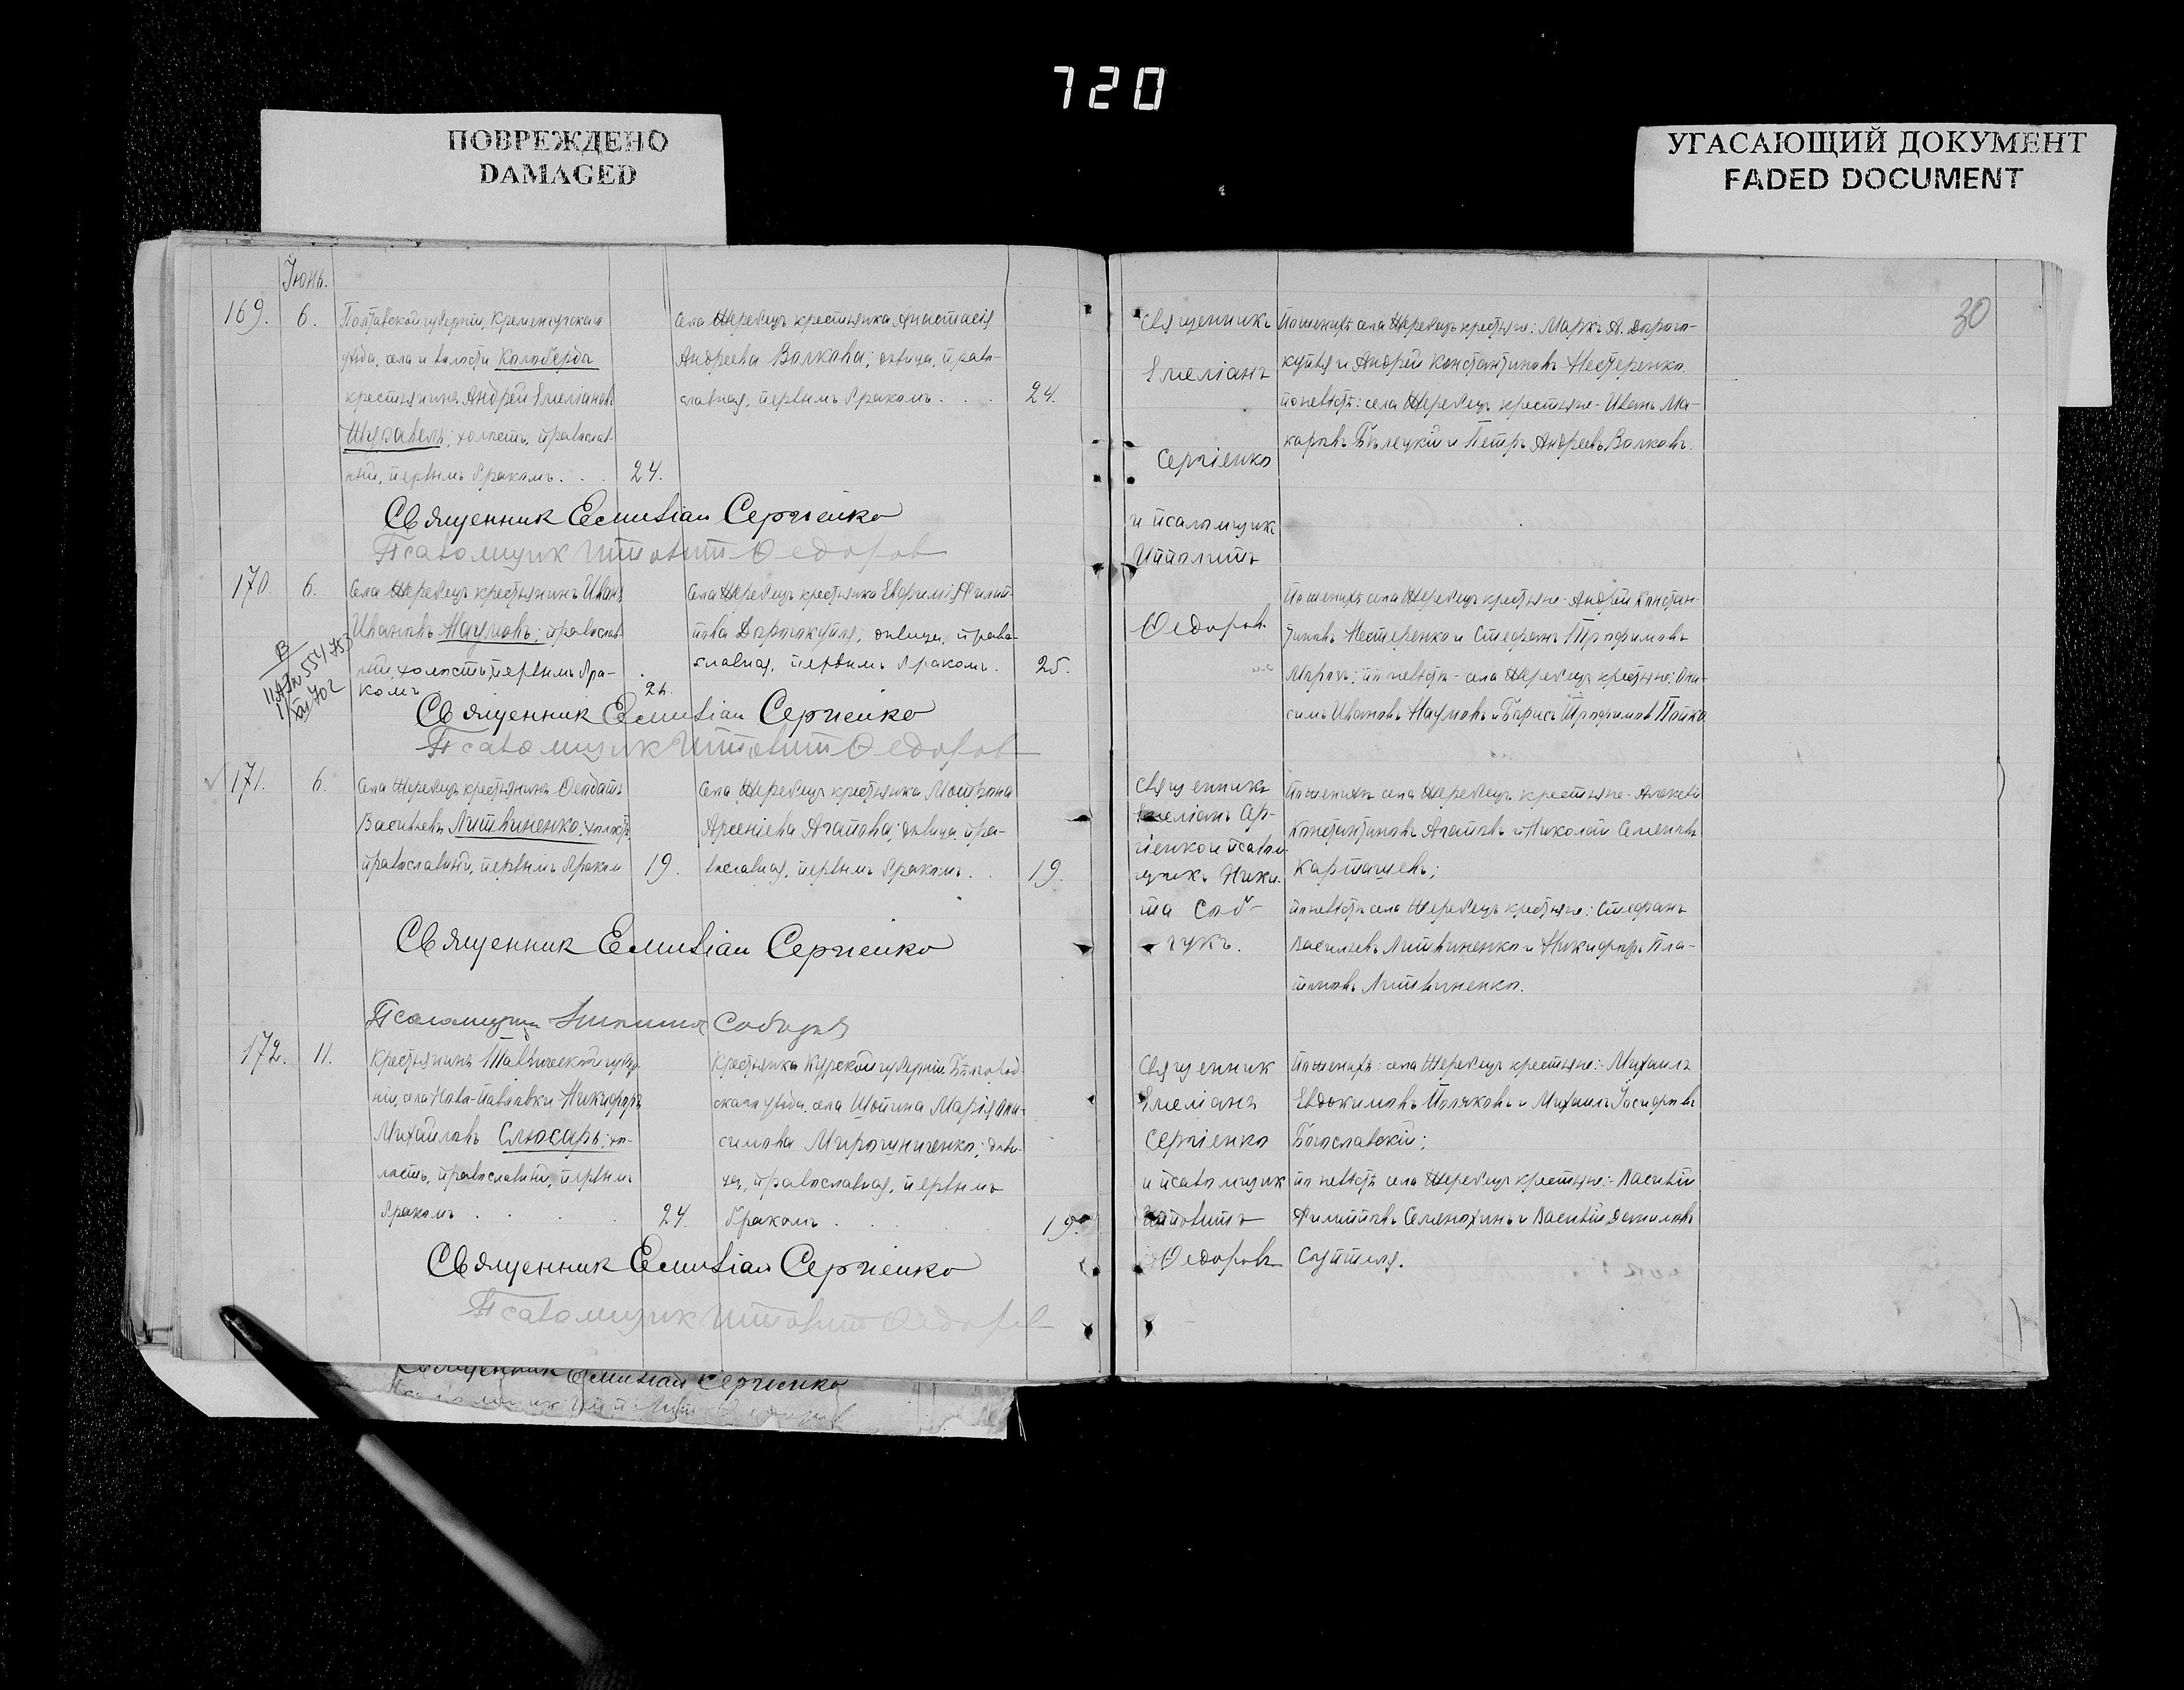 720
ПОВРЕЖДЕНО
DAMAGED
УГАСАЮЩИЙ ДОКУМЕНТ
FADED DOCUMENT
30
Іюнь.
169. 6.
Полтавской губерніи, Кременчугскаго
уѣзда, села и волости Калаберды
крестьянинъ Андрей Емеліановъ
Журавель; холостъ, православ-
ный, первымъ бракомъ. . . 24.
села Жеребецъ крестьянка Анастасія
Андреева Волкова; дѣвица, право-
славная, первымъ бракомъ. . . 24.
Священникъ
Емеліанъ
Сергіенко
и псаломщикъ
Ипполитъ
Федоровъ
По женихѣ: села Жеребецъ крестьяне: Маркъ А. Дорого-
купля и Андрей Константиновъ Нестеренко.
по невѣстѣ: села Жеребецъ крестьяне - Иванъ Ма-
каровъ Бѣлецкій и Петръ Андреевъ Волковъ.
Священник Емилиан Сергиенко
Псаломщик Ипполит Федоров
170. 6.
Села Жеребецъ крестьянинъ Иванъ
Ивановъ Наумовъ; православ-
ный, холостъ, первымъ бра-
комъ 24.
села Жеребецъ крестьянка Евфимія Филип-
пова Дорогокупля; дѣвица, право-
славная, первымъ бракомъ. 25.
По женихѣ села Жеребецъ крестьяне - Андрей Констан-
тиновъ Нестеренко и Стефанъ Трофимовъ
Морозъ; по невѣстѣ - села Жеребецъ крестьяне: Они-
симъ Ивановъ Наумовъ и Борисъ Трофимовъ
Священник Емилиан Сергиенко
Псаломщик Ипполит Федоров
171. 6.
Села Жеребецъ крестьянинъ Феодотъ
Васильевъ Литвиненко, холостъ,
православный, первымъ бракомъ 19.
села Жеребецъ крестьянка Мотрона
Арсеніева Агапова; дѣвица, пра-
вославная, первымъ бракомъ. . 19.
Священникъ
Емеліанъ Сер-
гіенко и псалом-
щикъ Ники-
та Соб-
чукъ.
По женихѣ села Жеребецъ крестьяне - Алексѣй
Константиновъ Агаповъ и Николай Семеновъ
Карташевъ;
по невѣстѣ села Жеребецъ крестьяне: Стефанъ
Васильевъ Литвиненко и Никифоръ Пла-
тоновъ Литвиненко.
Священник Емилиан Сергиенко
Псаломщик Никита Собчук
172. 11.
Крестьянинъ Таврической губер-
ніи, села Ново-Павловки Никифоръ
Михайловъ Слюсарь; хо-
лостъ, православный, первымъ
бракомъ . . . . 24.
Крестьянка Курской губерніи Бѣлгород-
скаго уѣзда, села Шопина Марія Они-
симова Мирошниченко; дѣви-
ца, православная, первымъ
бракомъ . . . 19.
Священник
Емеліанъ
Сергіенко
и псаломщик
Ипполитъ
Федоровъ
По женихѣ: села Жеребецъ крестьяне: - Михаилъ
Евдокимовъ Поляковъ и Михаилъ Іосифовъ
Богославскій;
по невѣстѣ села Жеребецъ крестьяне: - Василій
Филипповъ Семенохинъ и Василій Даниловъ
Священник Емилиан Сергиенко
Псаломщик Ипполит Федоров
Священник Емилиан Сергиенко